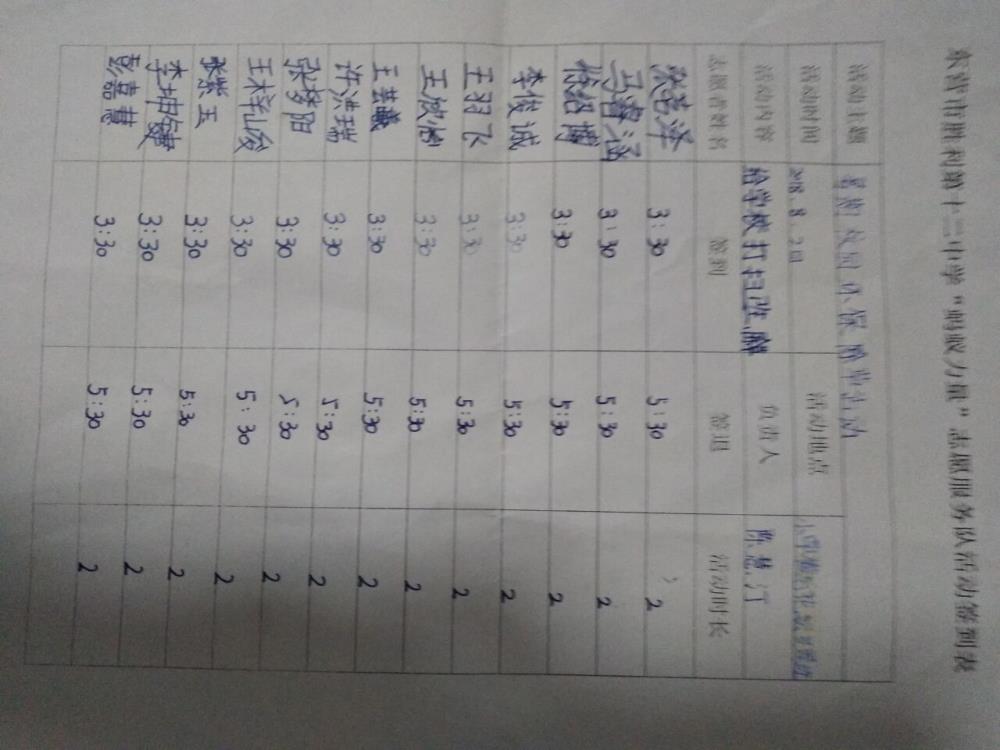 东营市胜利第十二中学“蚂蚁力量”志愿服务队活动签到表
活动主题 暑期校园环保 活动
活动时间 2018.8.2日 活动地点
活动内容 给学校打扫 负责人 陈慧汀
志愿者姓名 签到 签退 活动时长
泽 3:30 5:30 2
马睿涵 3:30 5:30 2
博 3:30 5:30 2
李俊诚 3:30 5:30 2
王羽飞 3:30 5:30 2
王欣 3:30 5:30 2
王艺曦 3:30 5:30 2
许洪瑞 3:30 5:30 2
张梦阳 3:30 5:30 2
王梓俊 3:30 5:30 2
张紫玉 3:30 5:30 2
李坤 3:30 5:30 2
彭嘉慧 3:30 5:30 2